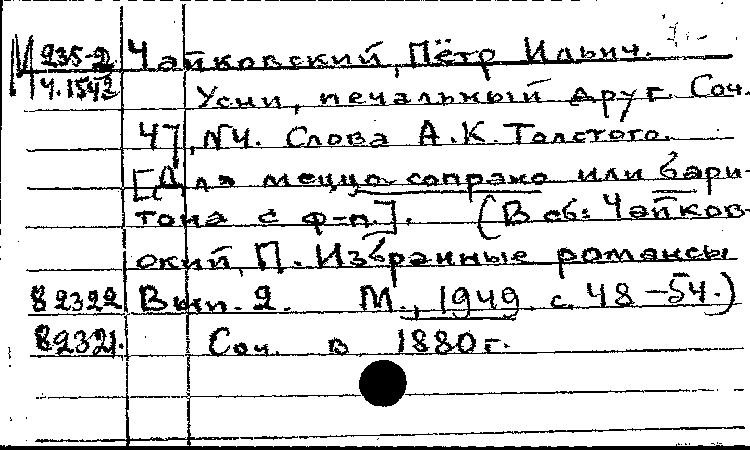 М 235-2 Чайковский, Пётр Ильич.
Ч.1542 Усни, печальный друг. Соч.
47, №4. Слова А.К. Толстого.
[Для меццо-сопрано или бари-
тона с ф-п.]. (В сб: Чайков-
ский, П. Избранные романсы
82322 Вып. 2. М., 1949 с. 48-54.)
82321. Соч. в 1880 г.